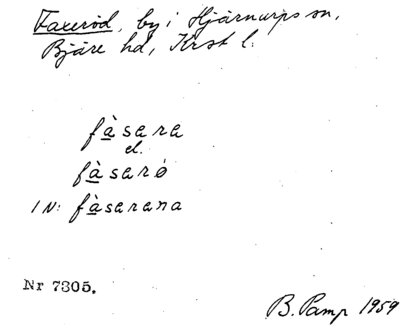 Faxeröd, by i Hjärnarps sn,
Bjäre hd, Krst l.
fàsara
el.
fàsarö
IN: fàsarana
Nr 7305.
B. Pamp 1959